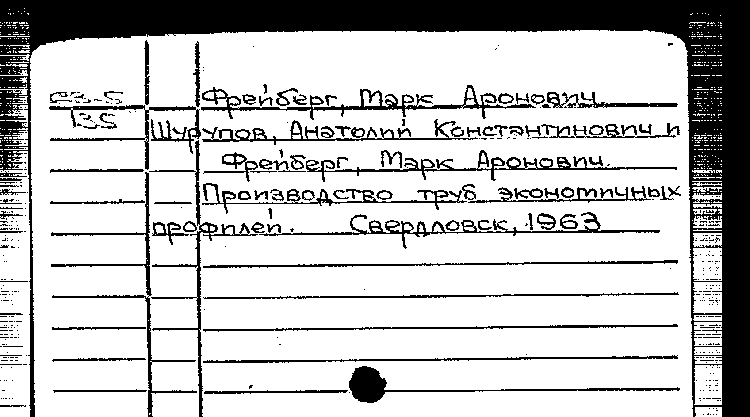 63-5 Фрейберг, Марк Аронович
135 Шурупов, Анатолий Константинович и
Фрейберг, Марк Аронович.
Производство труб экономичных
профилей. Свердловск, 1963